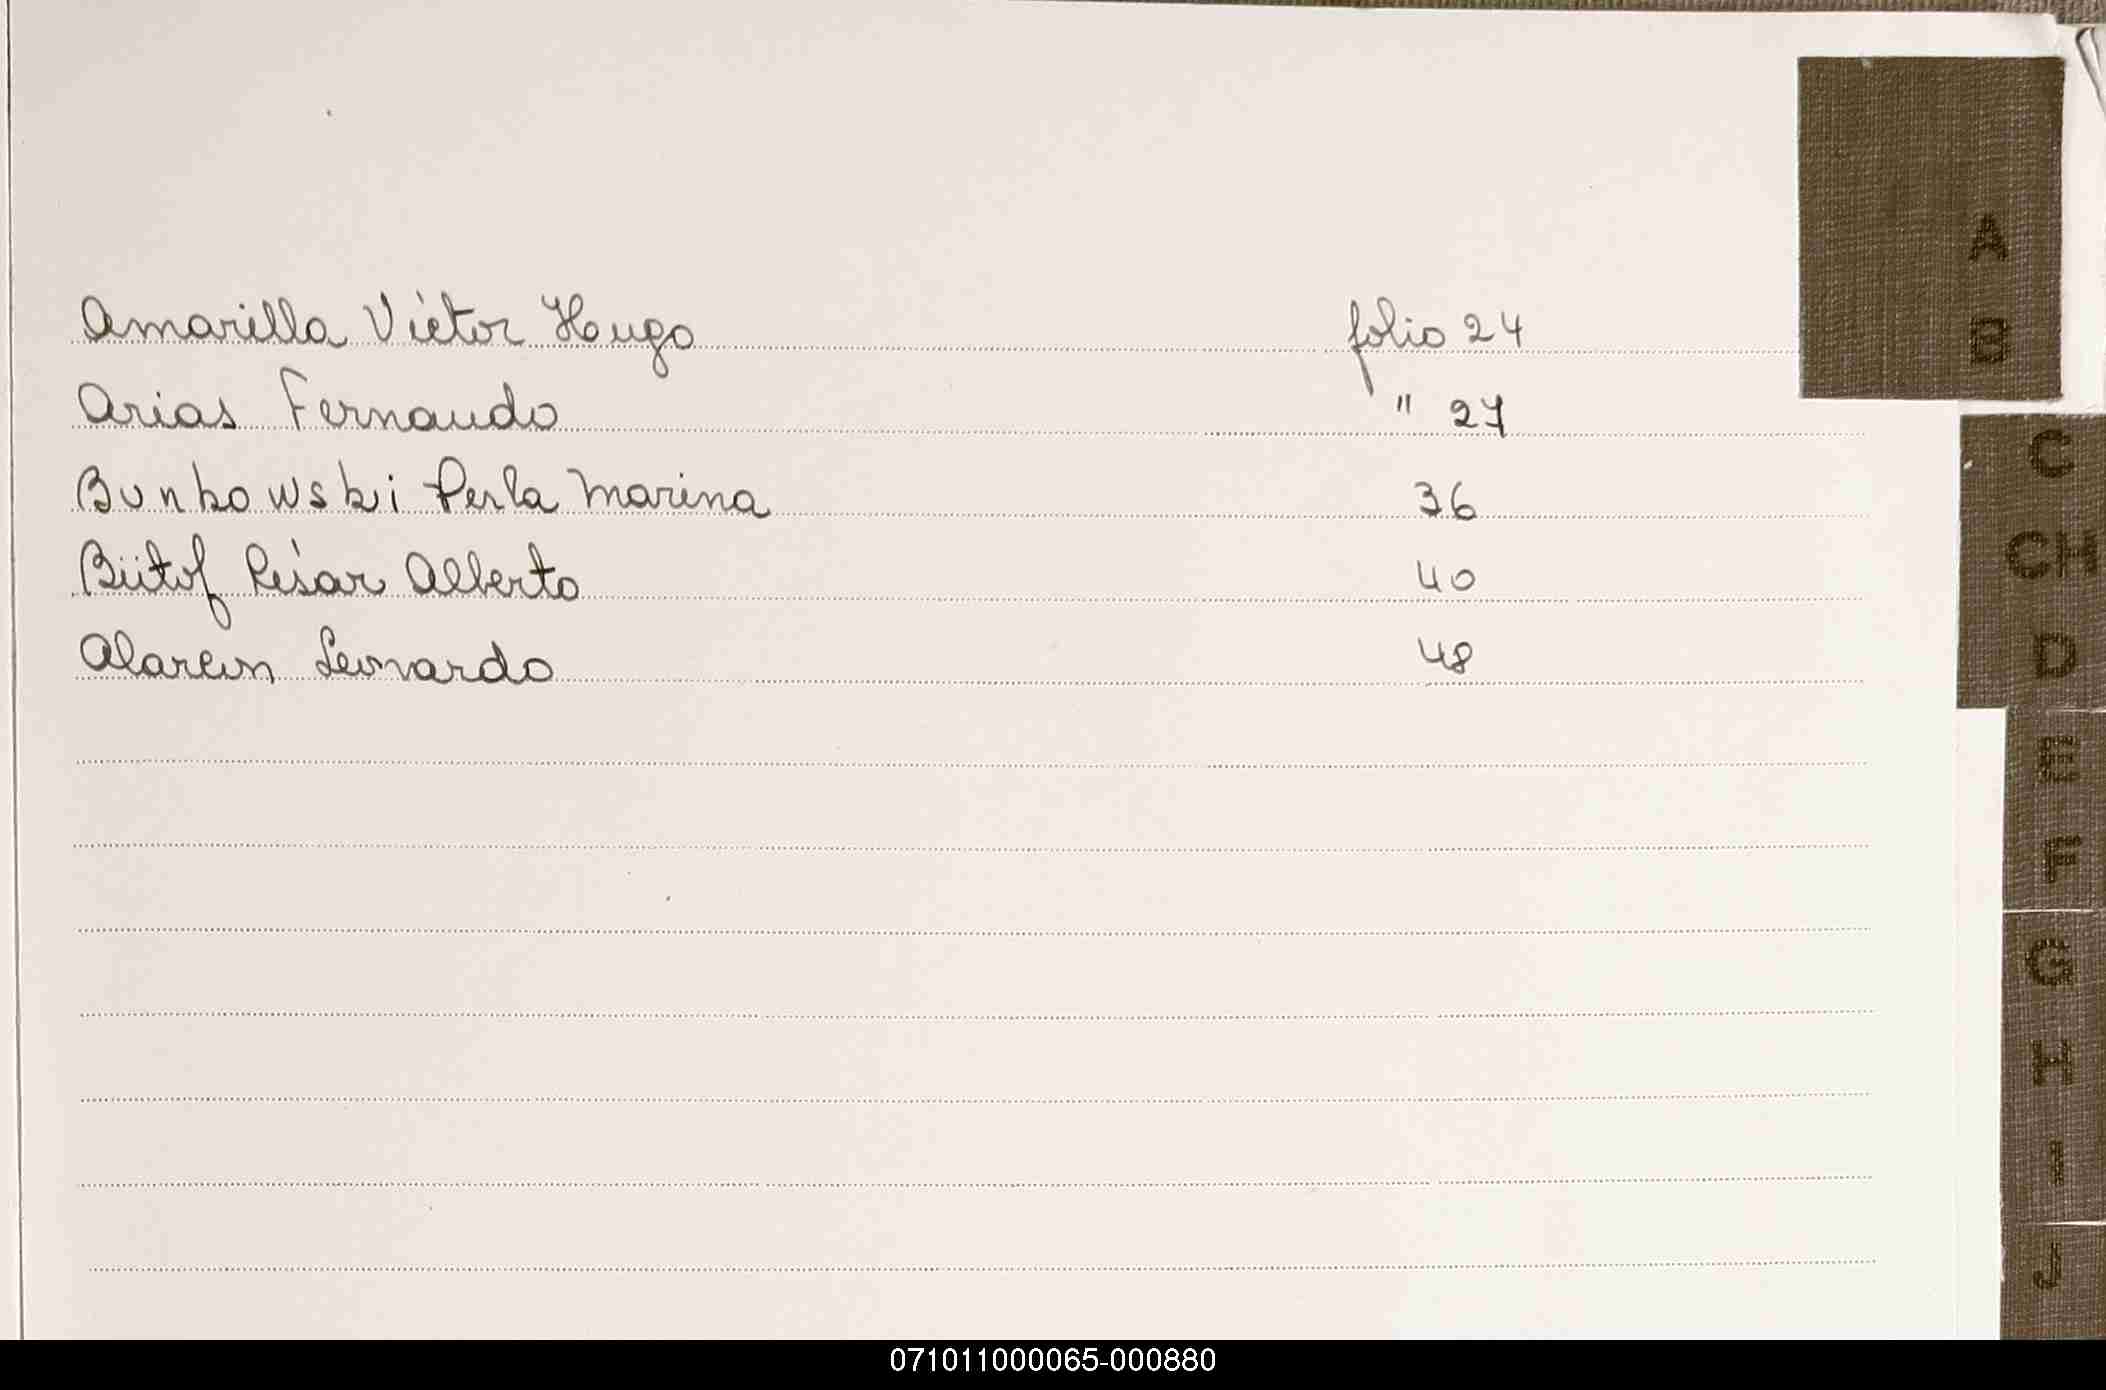 Amarilla Víctor Hugo folio 24
Arias Fernando " 27
Bunkowski Perla Marina 36
Bütof César Alberto 40
Alarcon Leonardo 48
A
B
C
CH
D
E
F
G
H
I
J
071011000065-000880